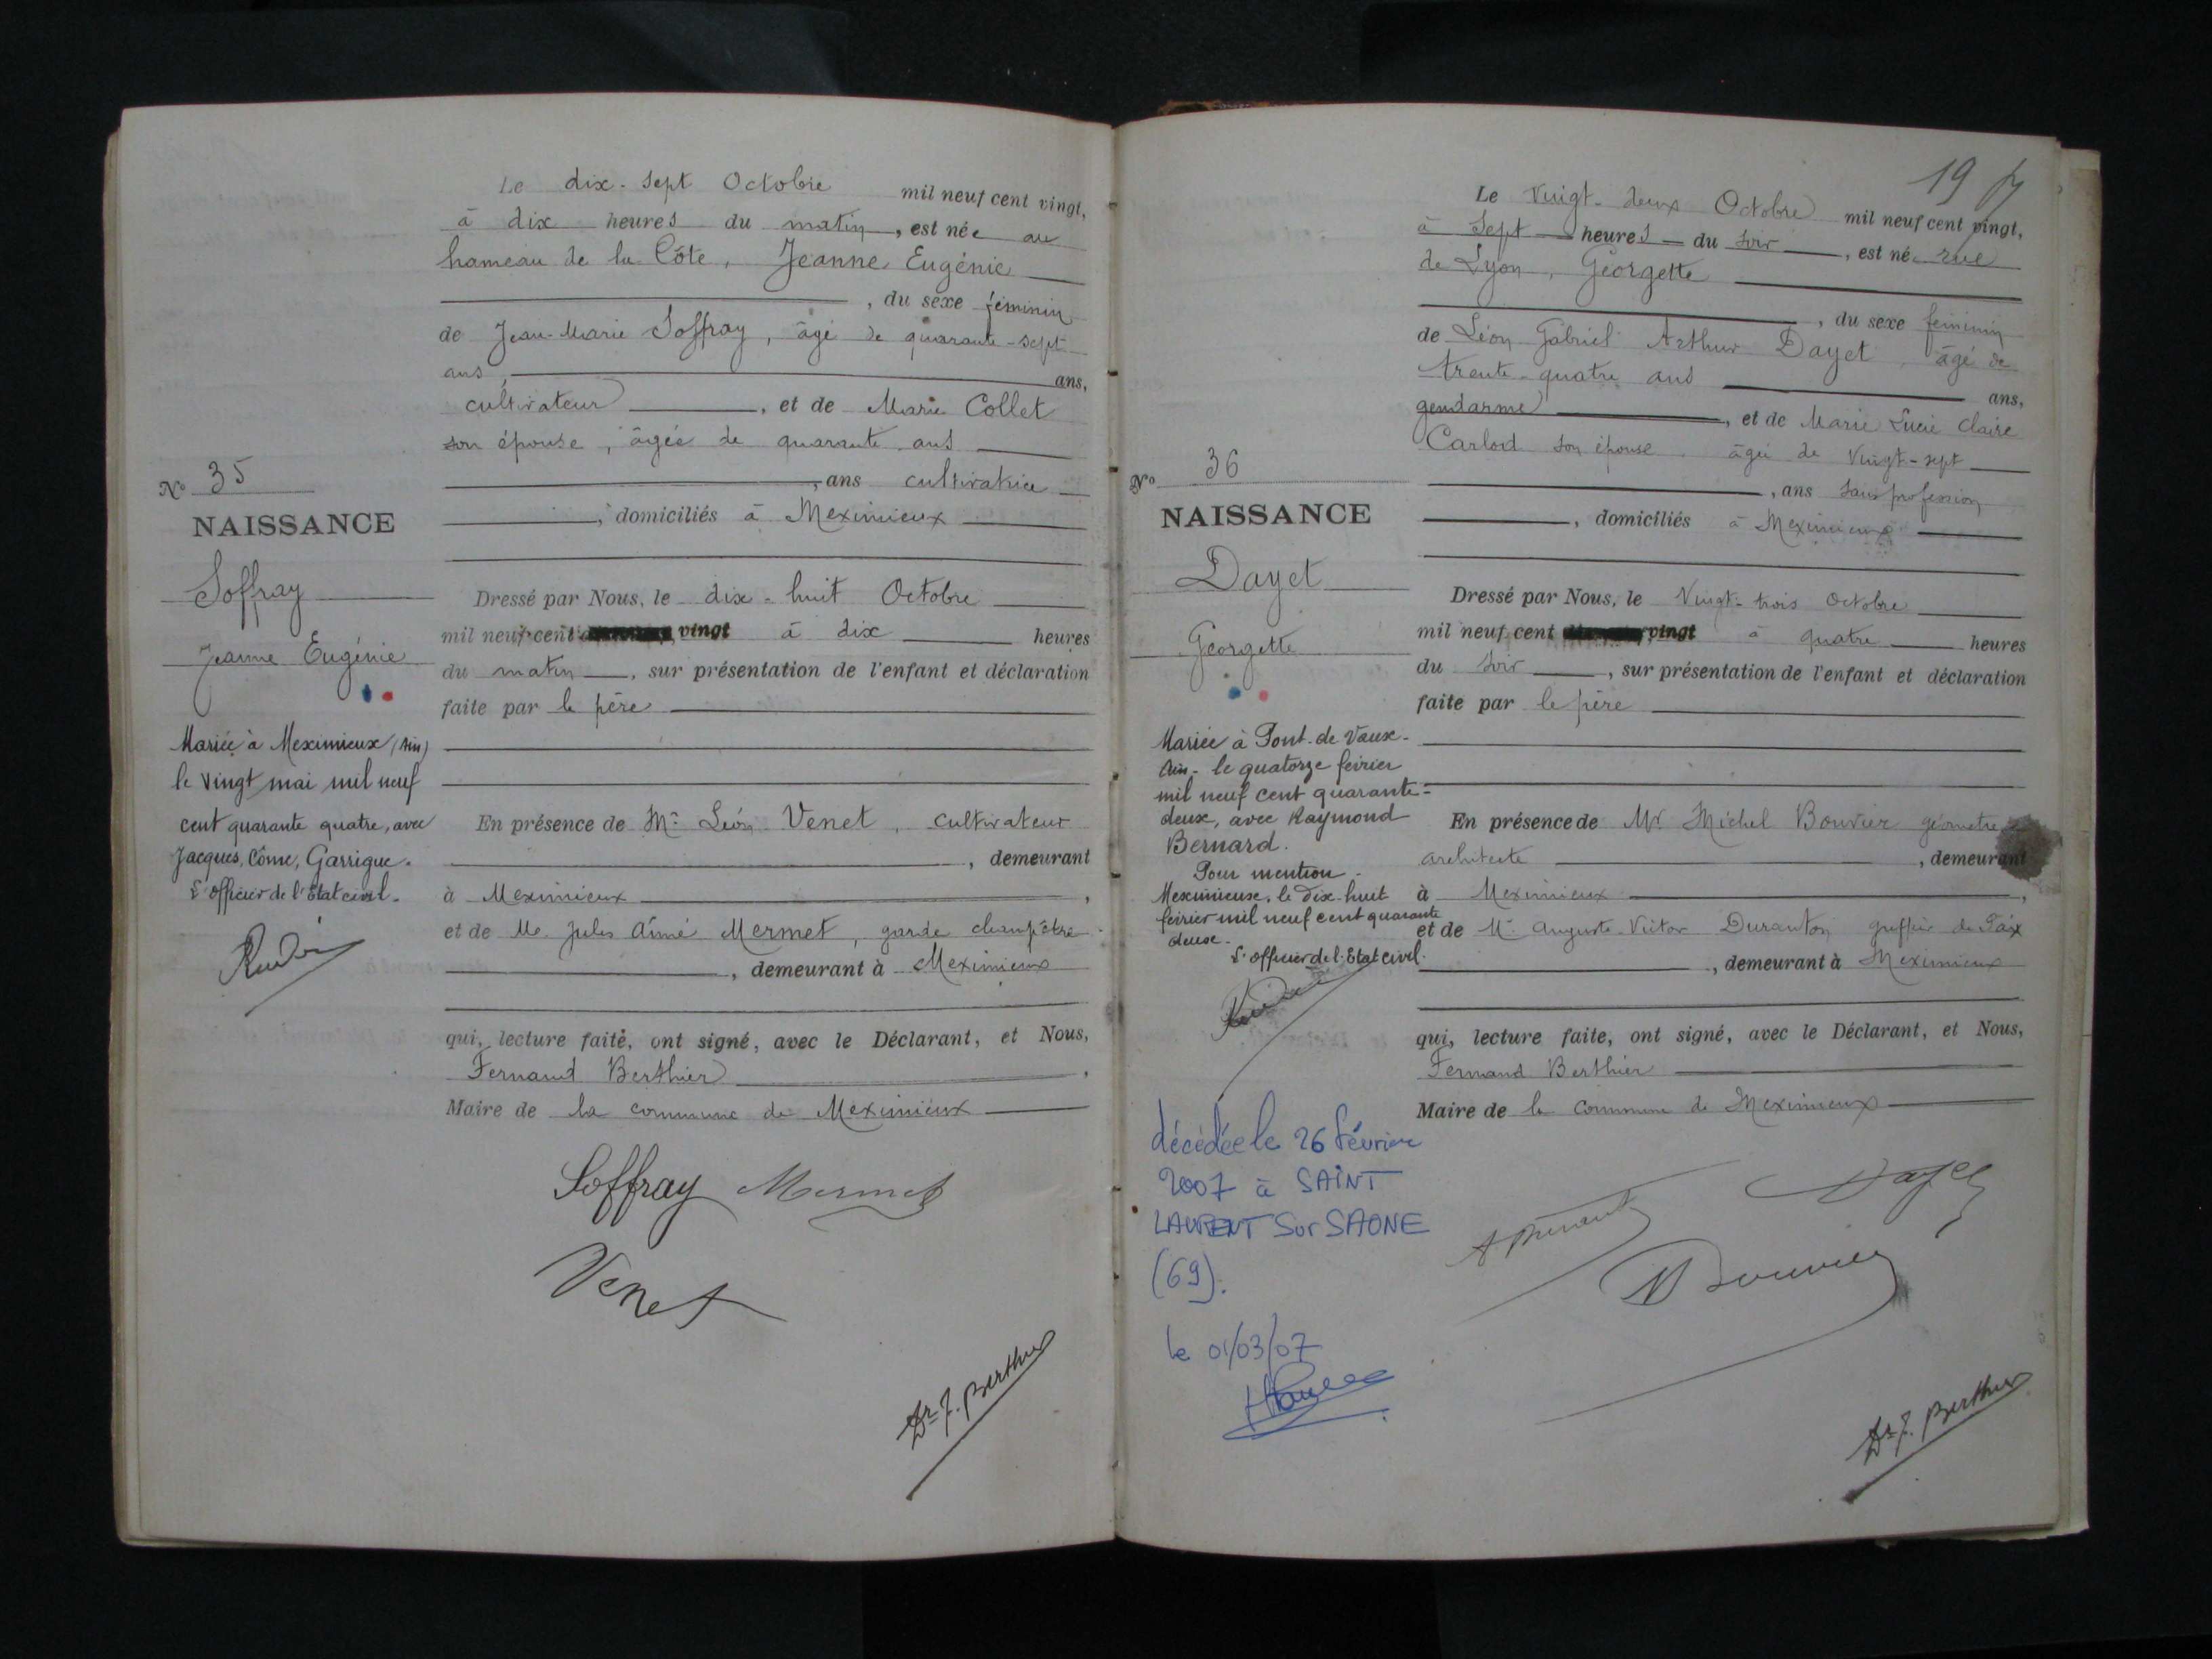 Le dix-sept Octobre mil neuf cent vingt,
à dix heures du matin, est née au
hameau de la Côte, Jeanne Eugénie
, du sexe féminin
de Jean-Marie Soffray, âgé de quarante-sept
ans, ans,
cultivateur, et de Marie Collet
son épouse, âgée de quarante ans
, ans cultivatrice
, domiciliés à Meximieux
Dressé par Nous, le dix-huit Octobre
mil neuf cent vingt à dix heures
du matin, sur présentation de l'enfant et déclaration
faite par le père
En présence de Mr Léon Venet, cultivateur
, demeurant
à Meximieux,
et de Mr Jules Aimé Mermet, garde champêtre
, demeurant à Meximieux
qui, lecture faite, ont signé, avec le Déclarant, et Nous,
Fernand Berthier,
Maire de la commune de Meximieux
Soffray Mermet
Venet
Dr F. Berthier
No 35
NAISSANCE
Soffray
Jeanne Eugénie
Mariée à Meximieux (Ain)
le vingt mai mil neuf
cent quarante quatre, avec
Jacques, Côme, Garrigue.
L'officier de l'Etat civil.
19
Le Vingt-deux Octobre mil neuf cent vingt,
à Sept heures du soir, est née rue
de Lyon, Georgette
, du sexe féminin
de Léon Gabriel Arthur Dayet, âgé de
trente-quatre ans ans,
gendarme, et de Marie Lucie Claire
Carlod son épouse âgée de vingt-sept
, ans sans profession
, domiciliés à Meximieux
Dressé par Nous, le Vingt-trois Octobre
mil neuf cent vingt à quatre heures
du soir, sur présentation de l'enfant et déclaration
faite par le père
En présence de Mr Michel Bouvier géomètre
architecte, demeurant
à Meximieux,
et de Mr Auguste Victor Duranton greffier de Paix
, demeurant à Meximieux
qui, lecture faite, ont signé, avec le Déclarant, et Nous,
Fernand Berthier
Maire de la Commune de Meximieux
Dayet
Bouvier
Dr F. Berthier
No 36
NAISSANCE
Dayet
Georgette
Mariée à Pont-de-Vaux-
Ain- le quatorze février
mil neuf cent quarante-
deux, avec Raymond
Bernard.
Pour mention-
Meximieux, le dix-huit
février mil neuf cent quarante
deux-
L'officier de l'Etat civil.
décédée le 26 février
2007 à SAINT
LAURENT Sur SAONE
(69).
le 01/03/07